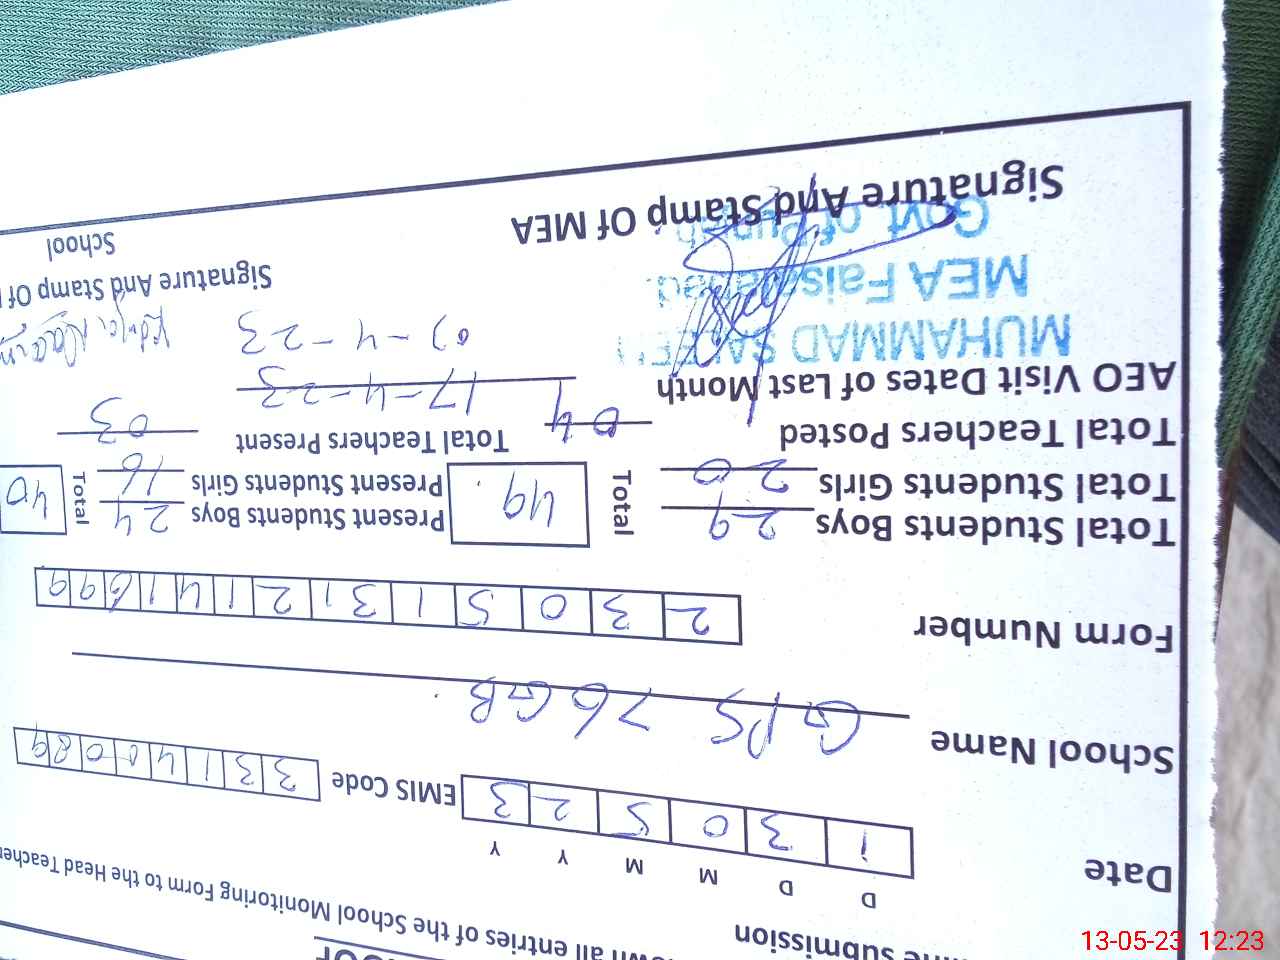 own all entries of the School Monitoring Form to the Head Teacher
submission
D D M M Y Y
Date 1 3 0 5 2 3 EMIS Code 3 3 1 4 0 0 8 9
School Name GPS 76 GB
Form Number 2 3 0 5 1 3 1 2 1 4 1 6 9 9
Total Students Boys 29 Total 49 Present Students Boys 24 Total 40
Total Students Girls 20 Present Students Girls 16
Total Teachers Posted 04 Total Teachers Present 03
AEO Visit Dates of Last Month 17-4-23
-4-23
MUHAMMAD
MEA Faisalabad
Govt. of Punjab
Signature And Stamp Of MEA
Signature And Stamp Of
School
13-05-23 12:23